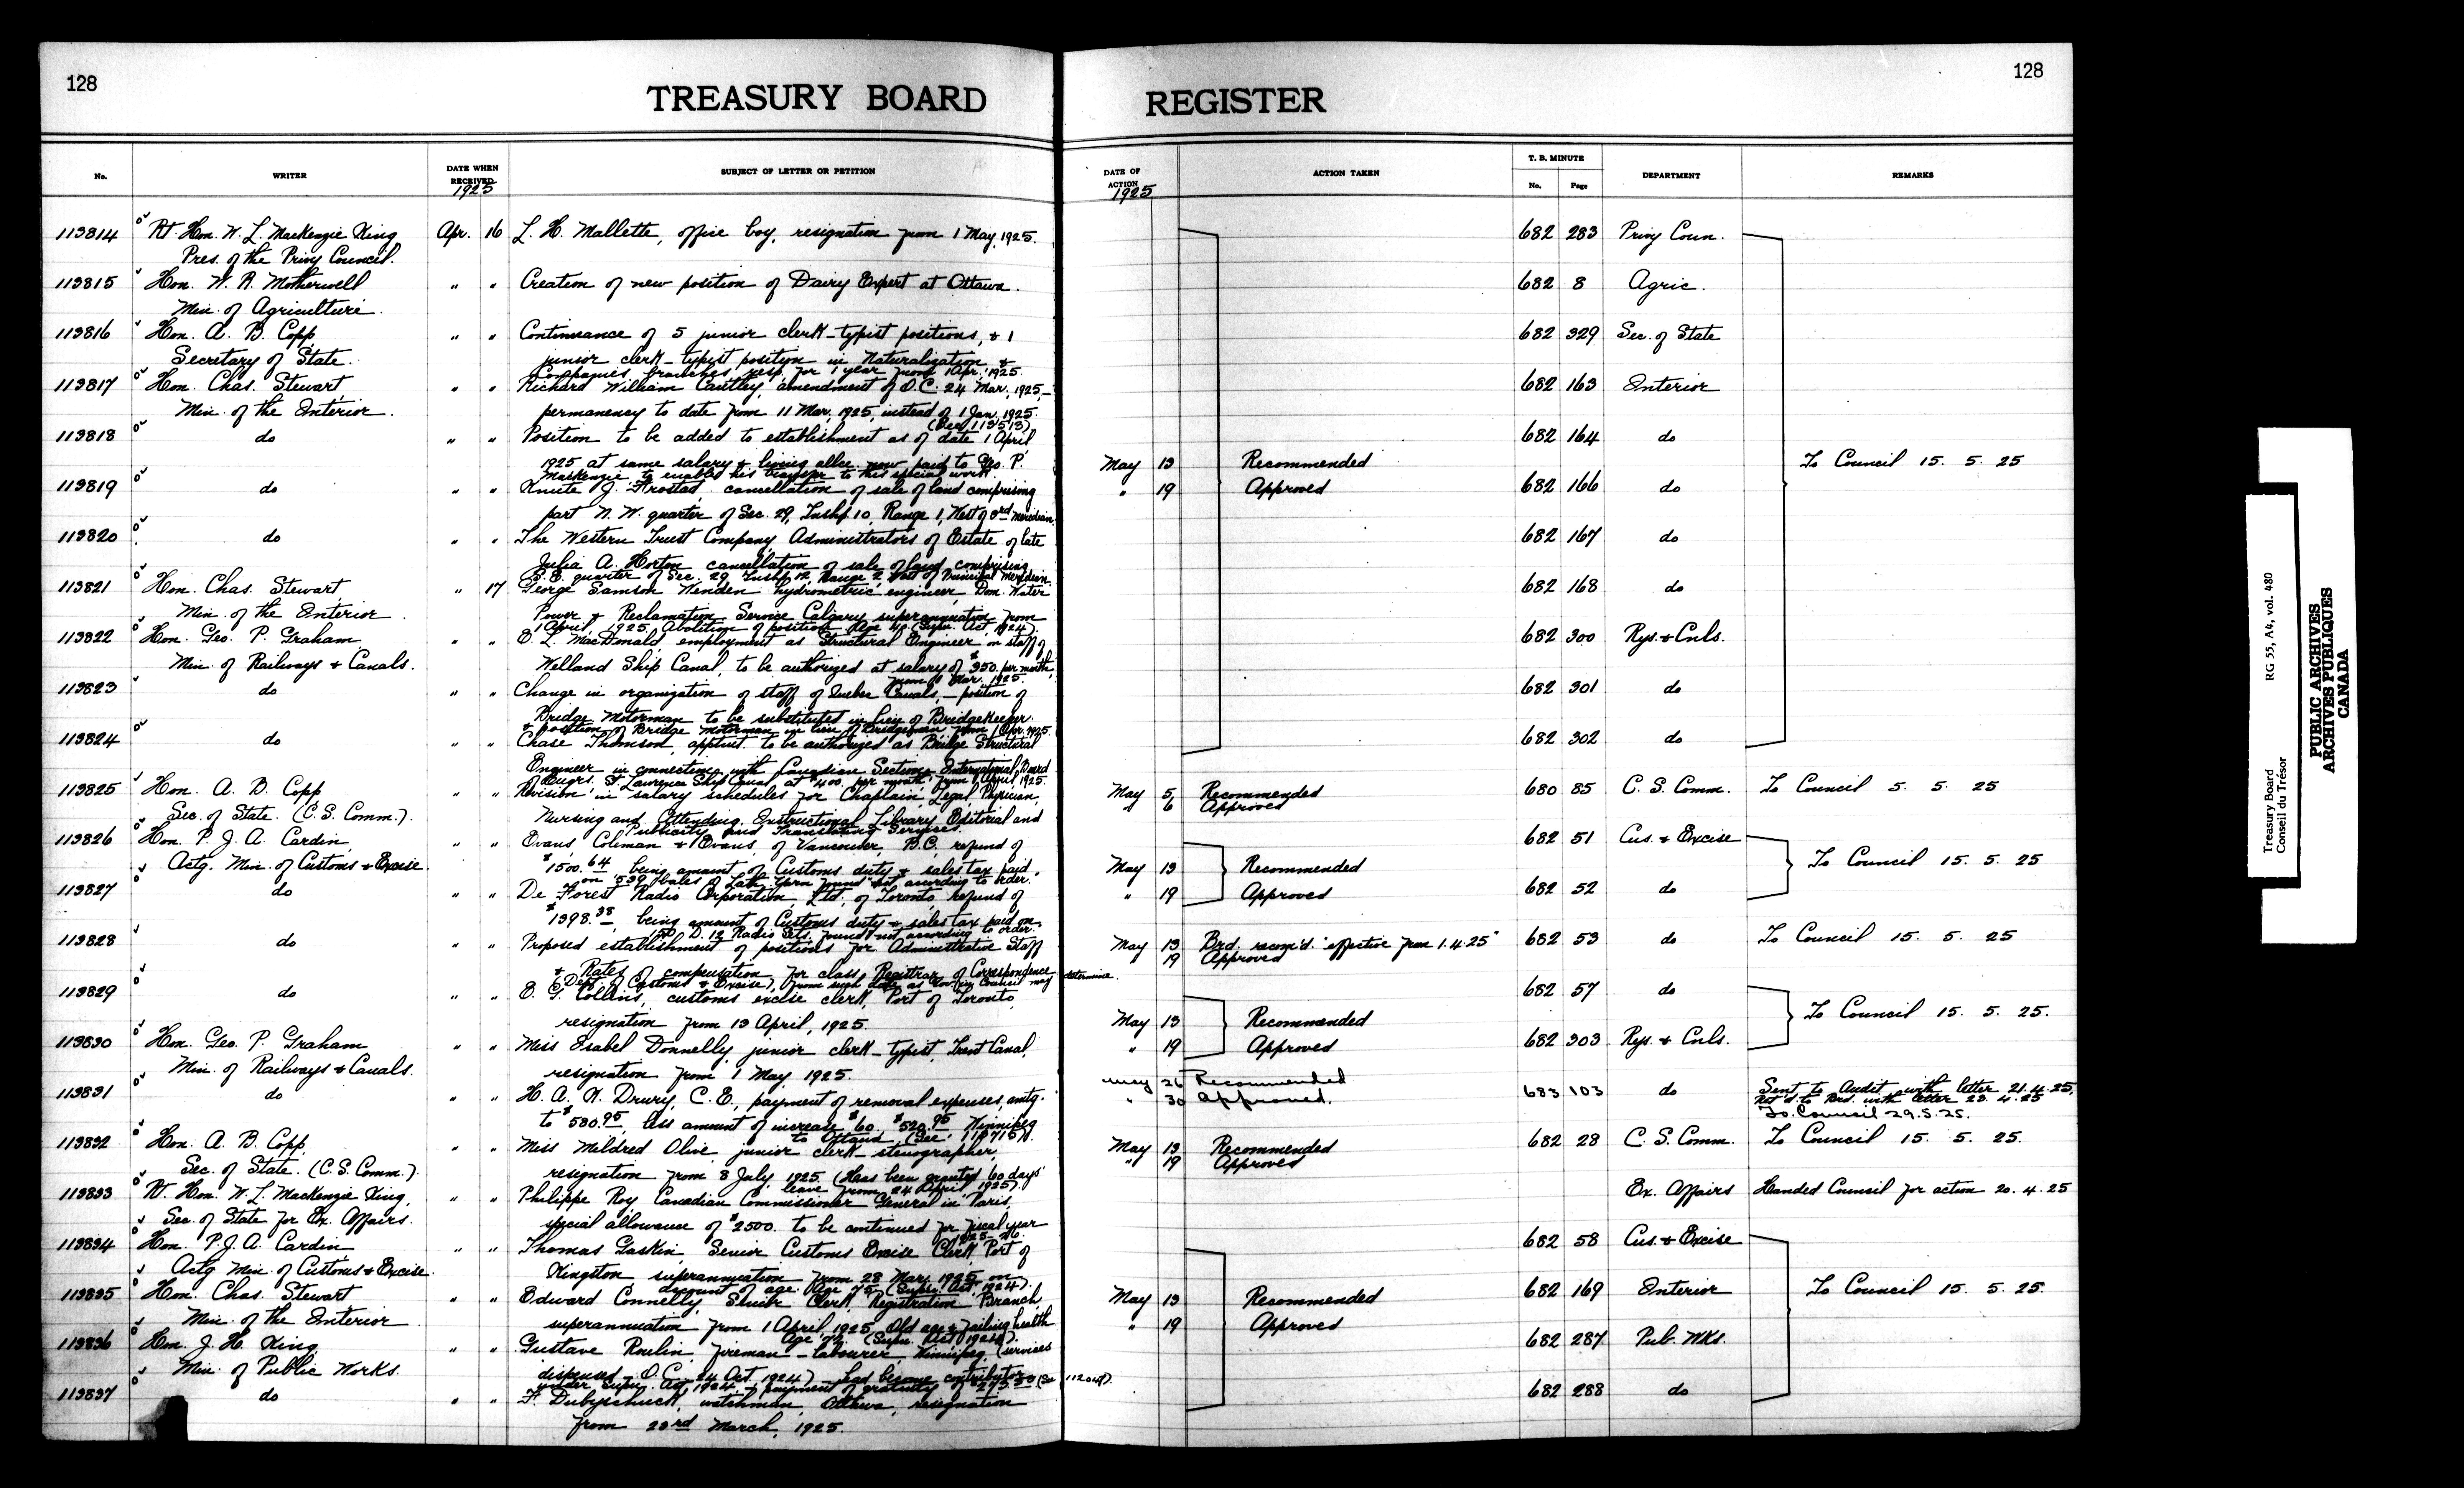 128
TREASURY BOARD REGISTER
128
No. WRITER DATE WHEN RECEIVED 1925 SUBJECT OF LETTER OR PETITION DATE OF ACTION 1925 ACTION TAKEN T. B. MINUTE No. Page DEPARTMENT REMARKS
113814 Rt. Hon. W. L. MacKenzie King Apr. 16 L. H. Mallette, office boy, resignation from 1 May, 1925. 682 283 Privy Coun.
Pres. of the Privy Council.
113815 Hon. W. R. Motherwell " " Creation of new position of Dairy Expert at Ottawa. 682 8 Agric.
Min. of Agriculture.
113816 Hon. A. B. Copp, " " Continuance of 5 junior clerk-typist positions, & 1 682 329 Sec. of State
Secretary of State. junior clerk-typist position in Naturalization &
Companies branches resp. for 1 year from 1 Apr. 1925.
113817 Hon. Chas. Stewart " " Richard William Cautley, amendment of O.C. 24 Mar., 1925,- 682 163 Interior
Min. of the Interior. permanency to date from 11 Mar. 1925, instead of 1 Jan. 1925.
(See 113513)
113818 do " " Position to be added to establishment as of date 1 April 682 164 do
1925 at same salary & living allce. now paid to Geo. P. May 13 Recommended To Council 15. 5. 25
MacKenzie to enable his transfer to this special work.
113819 do " " Knute J. Frostad, cancellation of sale of land comprising " 19 Approved 682 166 do
part N. W. quarter of Sec. 29, Tushp. 10, Range 1, West of 3rd Meridian.
113820 do " " The Western Trust Company Administrators of Estate of late 682 167 do
Julia A. Horton cancellation of sale of land comprising
S. E. quarter of Sec. 29, Tushp. 12, Range 2, West of Principal Meridian.
113821 Hon. Chas. Stewart, " 17 George Samson Wenden hydrometric engineer, Dom. Water 682 168 do
Min. of the Interior. Power & Reclamation Service Calgary superannuation from
1 April, 1925, Abolition of position. Age 40. (Supn. Act, 1924).
113822 Hon. Geo. P. Graham, " " E. L. MacDonald, employment as Structural Engineer on staff of 682 300 Rys. & Cnls.
Min. of Railways & Canals. Welland Ship Canal, to be authorized at salary of $350. per month,
from Mar. 1925.
113823 do " " Change in organization of staff of Quebec Canals,- position of 682 301 do
Bridge Motorman to be substituted in lieu of BridgeKeeper.
& position of Bridge Motorman in lieu of Bridgeman from 1 Apr. 1925.
113824 do " " Chase Thomson, apptmt. to be authorized as Bridge Structural 682 302 do
Engineer in connection with Canadian Section, International Board
of Engrs. St. Lawrence Ship Canal at $400. per month from 1 April, 1925.
113825 Hon. A. B. Copp " " Revision in salary schedules for Chaplain, Legal, Physician, May 5 Recommended 680 85 C. S. Comm. To Council 5. 5. 25
Sec. of State. (C.S. Comm.). Nursing and Attending, Instructional, Library Editorial and " 6 Approved
Publicity and Translating Services.
113826 Hon. P. J. A. Cardin, " " Evans, Coleman & Evans, of Vancouver, B.C., refund of 682 51 Cus. & Excise
Actg. Min. of Customs & Excise. $1500.64 being amount of Customs duty & sales tax paid May 13 Recommended To Council 15. 5. 25
on 539 bales of Lath Yarn found not according to order.
113827 do " " De Forest Radio Corporation, Ltd., of Toronto, refund of " 19 Approved 682 52 do
$1398.38, being amount of Customs duty & sales tax paid on
150 D. 12 Radio Sets found not according to order.
113828 do " " Proposed establishment of positions for Administrative Staff May 13 Brd. recom'd. "effective from 1.4.25" 682 53 do To Council 15. 5. 25
& Rates of compensation, for class, Registrar of Correspondence 19 Approved
(Dept. of Customs & Excise), from such date as Gov. in Council may determine.
113829 do " " E. G. Collins, customs excise clerk, Port of Toronto, 682 57 do
resignation from 13 April, 1925. May 13 Recommended To Council 15. 5. 25.
113830 Hon. Geo. P. Graham " " Miss Isabel Donnelly, junior clerk-typist, Trent Canal, " 19 Approved 682 303 Rys. & Cnls.
Min. of Railways & Canals. resignation from 1 May, 1925.
113831 do " " H. A. K. Drury, C. E., payment of removal expenses, amtg. May 26 Recommended 683 103 do Sent to Audit with letter 21.4.25,
to $580.95, less amount of increase $60. $520.95 Winnipeg " 30 Approved. Ret'd. to Brd. with letter 23. 4. 25
to Ottawa (See: 113715). To Council 29.5.25.
113832 Hon. A. B. Copp, " " Miss Mildred Olive, junior clerk-stenographer, May 13 Recommended 682 28 C. S. Comm. To Council 15. 5. 25.
Sec. of State. (C.S. Comm.). resignation from 8 July, 1925. (Has been granted 60 days' " 19 Approved
leave from 24 April 1925).
113833 Rt. Hon. W. L. MacKenzie King, " " Philippe Roy Canadian Commissioner General in Paris, Ex. Affairs Handed Council for action 20. 4. 25
Sec. of State for Ex. Affairs. special allowance of $2500. to be continued for fiscal year
1925-26.
113834 Hon. P. J. A. Cardin, " " Thomas Gaskin, Senior Customs Excise Clerk, Port of 682 58 Cus. & Excise
Actg. Min. of Customs & Excise. Kingston superannuation from 28 Mar. 1925 on
account of age. Age 75. (Supn. Act, 1924).
113835 Hon. Chas. Stewart " " Edward Connelly, Senior Clerk, Registration Branch, May 13 Recommended 682 169 Interior To Council 15. 5. 25.
Min. of the Interior superannuation from 1 April, 1925, Old age & failing health. " 19 Approved
Age (Supn. Act 1924).
113836 Hon. J. H. King, " " Gustave Roulin, fireman-labourer, Winnipeg, (services 682 287 Pub. Wks.
Min. of Public Works. dispensed O.C. 24 Oct. 1924)- had become contributor
under Supn. Act, 1924, & payment of gratuity of (See 112048).
113837 do " " F. watchman, Ottawa, resignation 682 288 do
from 23rd March, 1925.
Treasury Board RG 55, A4, vol. 480
Conseil du Trésor
PUBLIC ARCHIVES
ARCHIVES PUBLIQUES
CANADA